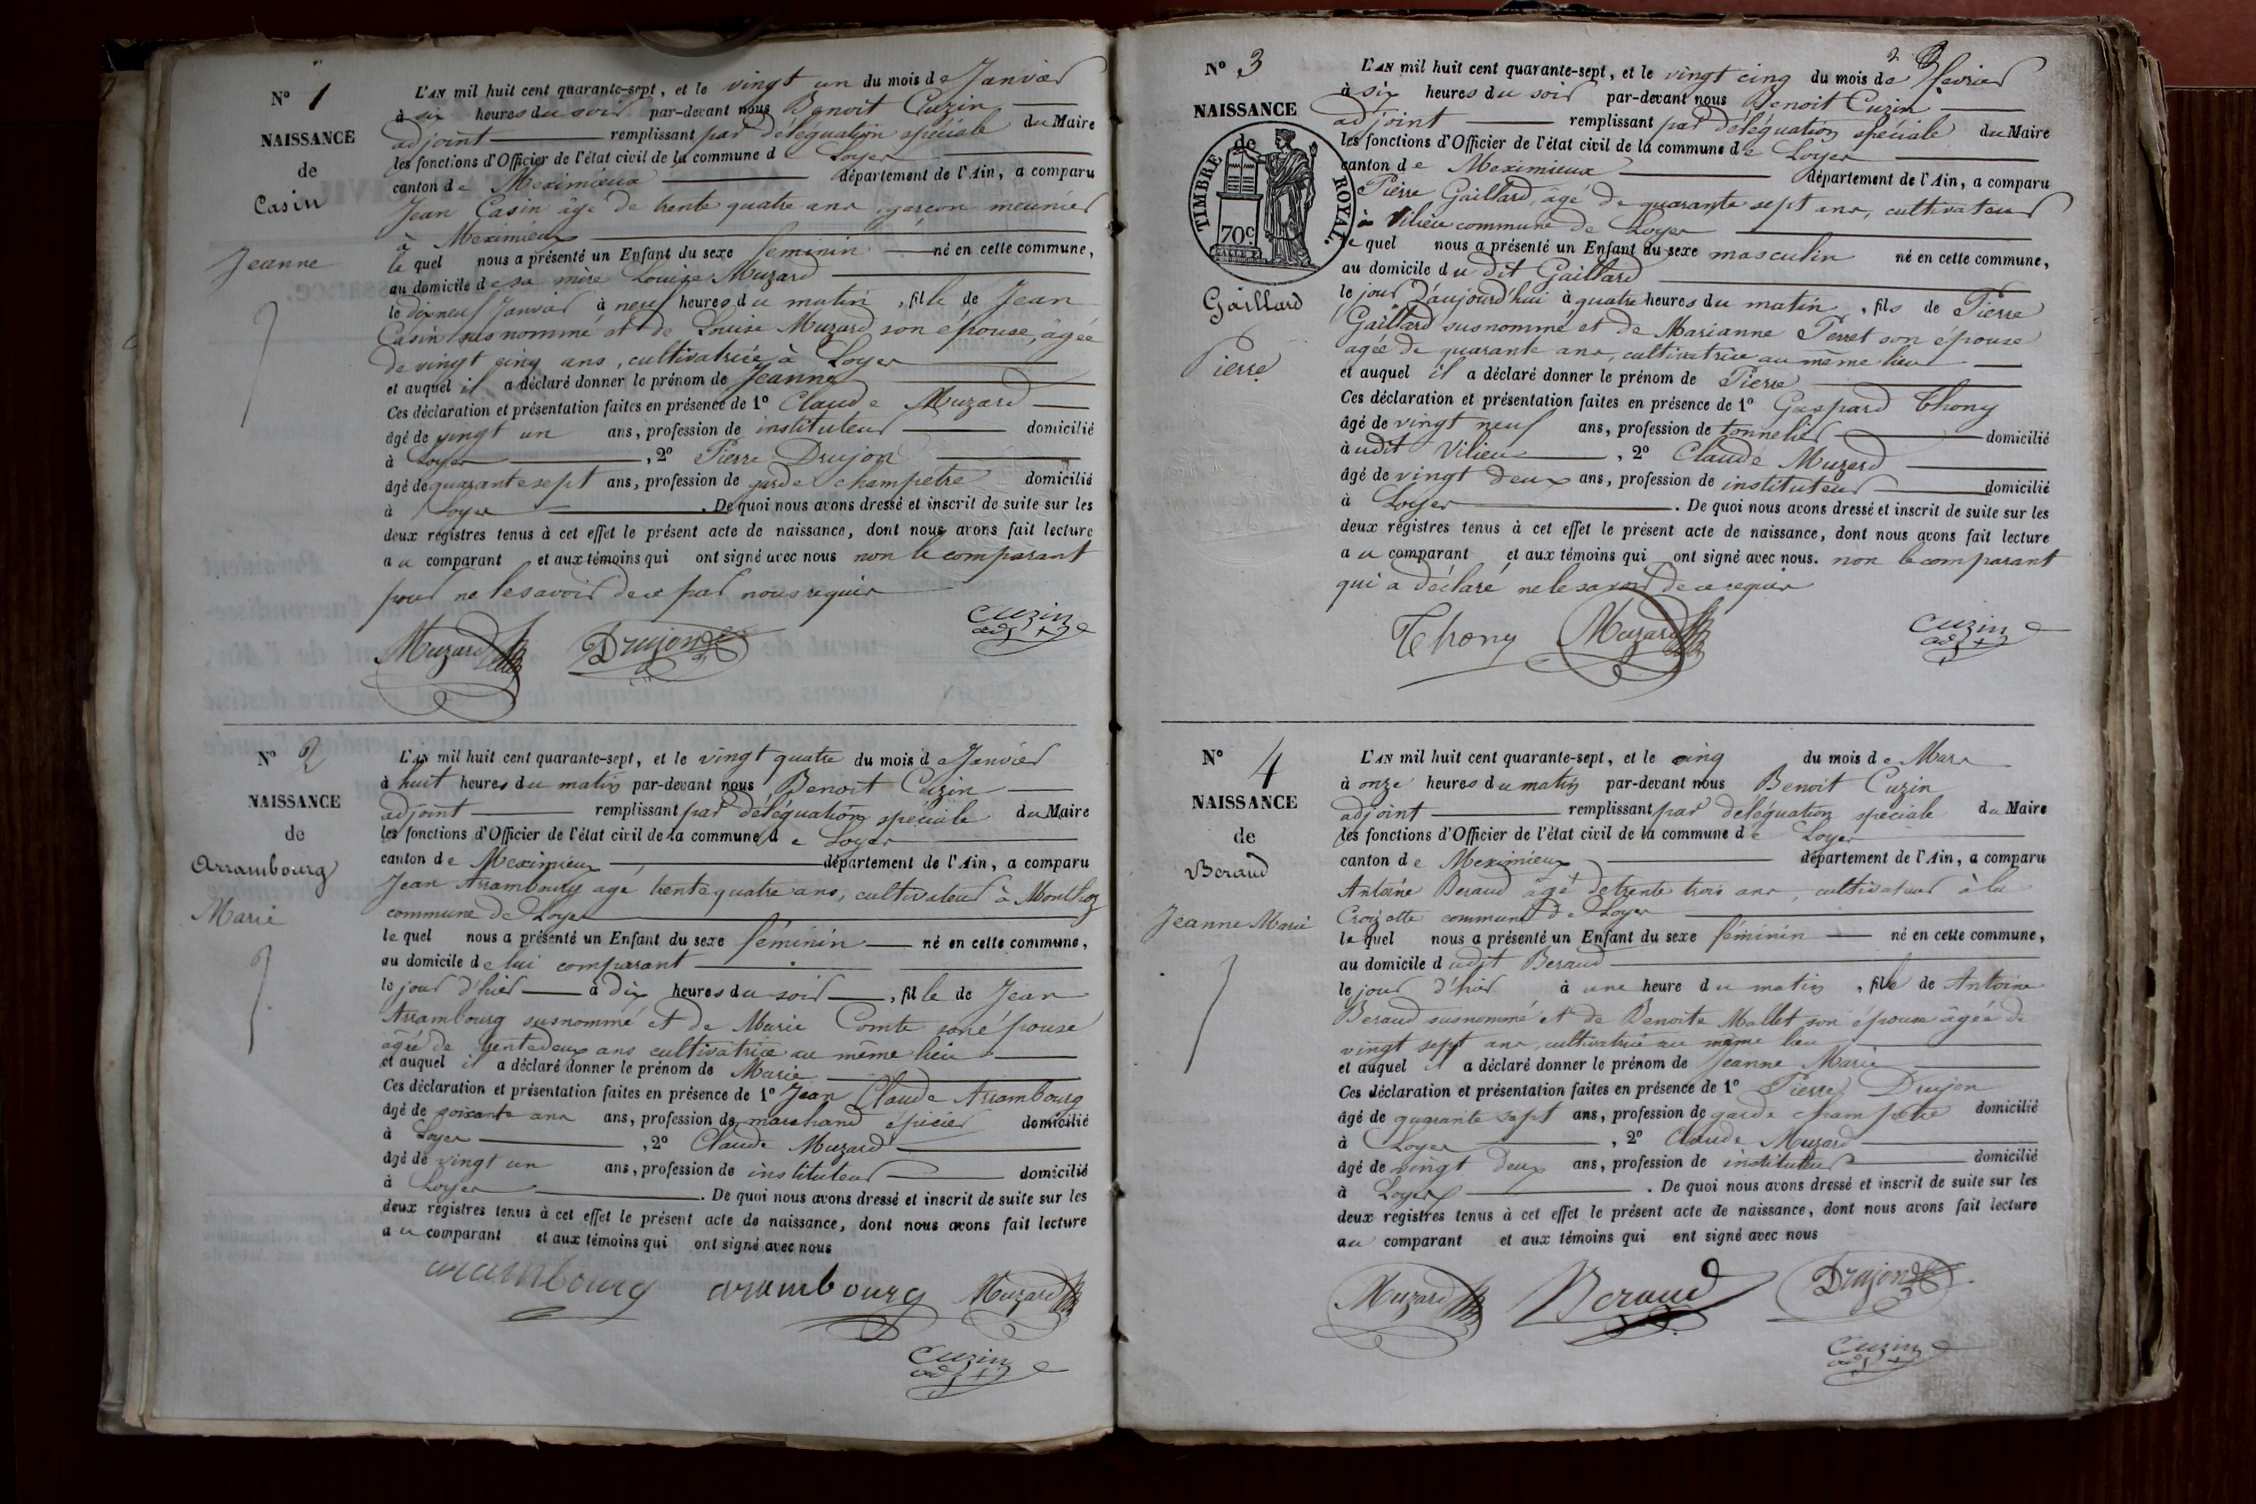 N° 1
NAISSANCE
de
Casin
Jeanne
L'AN mil huit cent quarante-sept, et le vingt un du mois de Janvier
à six heures du soir par-devant nous Benoit Cuzin
adjoint remplissant par déléguation spéciale du Maire
les fonctions d'Officier de l'état civil de la commune de Loyes
canton de Meximieux département de l'Ain, a comparu
Jean Casin âgé de trente quatre ans garçon meunier
à Meximieux
le quel nous a présenté un Enfant du sexe feminin né en cette commune,
au domicile de sa mère Louise Muzard
le dix neuf Janvier à neuf heures du matin, fille de Jean
Casin susnommé et de Louise Muzard son épouse, âgée
de vingt cinq ans, cultivatrice à Loyes
et auquel il a déclaré donner le prénom de Jeanne
Ces déclaration et présentation faites en présence de 1° Claude Muzard
âgé de vingt un ans, profession de instituteur domicilié
à Loyes, 2° Pierre Drujon
âgé de quarante sept ans, profession de garde champêtre domicilié
à Loyes. De quoi nous avons dressé et inscrit de suite sur les
deux registres tenus à cet effet le présent acte de naissance, dont nous avons fait lecture
au comparant et aux témoins qui ont signé avec nous non le comparant
pour ne le savoir de ce par nous requis
Cuzin
adj
Muzard Drujon
N° 2
NAISSANCE
de
Arrambourg
Marie
L'AN mil huit cent quarante-sept, et le vingt quatre du mois de Janvier
à huit heures du matin par-devant nous Benoit Cuzin
adjoint remplissant par déléguation spéciale du Maire
les fonctions d'Officier de l'état civil de la commune de Loyes
canton de Meximieux département de l'Ain, a comparu
Jean Arrambourg agé trente quatre ans, cultivateur à Monthoz
commune de Loyes
le quel nous a présenté un Enfant du sexe féminin né en cette commune,
au domicile de lui comparant
le jour d'hier à dix heures du soir, fille de Jean
Arrambourg susnommé et de Marie Comte son épouse
âgée de trente deux ans cultivatrice au même lieu
et auquel il a déclaré donner le prénom de Marie
Ces déclaration et présentation faites en présence de 1° Jean Claude Arrambourg
âgé de soixante ans ans, profession de marchand épicier domicilié
à Loyes, 2° Claude Muzard
âgé de vingt un ans, profession de instituteur domicilié
à Loyes. De quoi nous avons dressé et inscrit de suite sur les
deux registres tenus à cet effet le présent acte de naissance, dont nous avons fait lecture
au comparant et aux témoins qui ont signé avec nous
arambourg arambourg Muzard
Cuzin
adj
N° 3
NAISSANCE
de
TIMBRE ROYAL.
70c
Gaillard
Pierre
L'AN mil huit cent quarante-sept, et le vingt cinq du mois de fevrier
à six heures du soir par-devant nous Benoit Cuzin
adjoint remplissant par déléguation spéciale du Maire
les fonctions d'Officier de l'état civil de la commune de Loyes
canton de Meximieux département de l'Ain, a comparu
Pierre Gaillard, âgé de quarante sept ans, cultivateur
à Vilieu commune de Loyes
le quel nous a présenté un Enfant du sexe masculin né en cette commune,
au domicile du dit Gaillard
le jour d'aujourd'hui à quatre heures du matin, fils de Pierre
Gaillard susnommé et de Marianne Perret son épouse
agée de quarante ans, cultivatrice au même lieu
et auquel il a déclaré donner le prénom de Pierre
Ces déclaration et présentation faites en présence de 1° Gaspard Thony
âgé de vingt neuf ans, profession de tonnelier domicilié
à udit Vilieu, 2° Claude Muzard
âgé de vingt deux ans, profession de instituteur domicilié
à Loyes. De quoi nous avons dressé et inscrit de suite sur les
deux registres tenus à cet effet le présent acte de naissance, dont nous avons fait lecture
au comparant et aux témoins qui ont signé avec nous. non le comparant
qui a déclaré ne le savoir de ce requis
Thony Muzard Cuzin
adj
N° 4
NAISSANCE
de
Beraud
Jeanne Marie
L'AN mil huit cent quarante-sept, et le cinq du mois de Mars
à onze heures du matin par-devant nous Benoit Cuzin
adjoint remplissant par déléguation spéciale du Maire
les fonctions d'Officier de l'état civil de la commune de Loyes
canton de Meximieux département de l'Ain, a comparu
Antoine Beraud âgé de trente trois ans, cultivateur à la
Croizette commune de Loyes
le quel nous a présenté un Enfant du sexe féminin né en cette commune,
au domicile dudit Beraud
le jour d'hier à une heure du matin, fille de Antoine
Beraud susnommé et de Benoite Mallet son épouse âgée de
vingt sept ans, cultivatrice au même lieu
et auquel il a déclaré donner le prénom de Jeanne Marie
Ces déclaration et présentation faites en présence de 1° Pierre Drujon
âgé de quarante sept ans, profession de garde champetre domicilié
à Loyes, 2° Claude Muzard
âgé de vingt deux ans, profession de instituteur domicilié
à Loyes. De quoi nous avons dressé et inscrit de suite sur les
deux registres tenus à cet effet le présent acte de naissance, dont nous avons fait lecture
au comparant et aux témoins qui ont signé avec nous
Muzard Beraud Drujon
Cuzin
adj